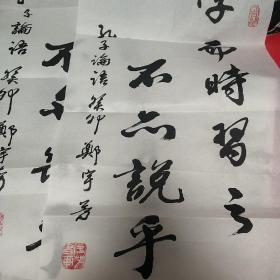 学而時習之
不亦説乎
孔子論語癸卯鄭宇芳
子論語癸卯鄭宇芳
不亦